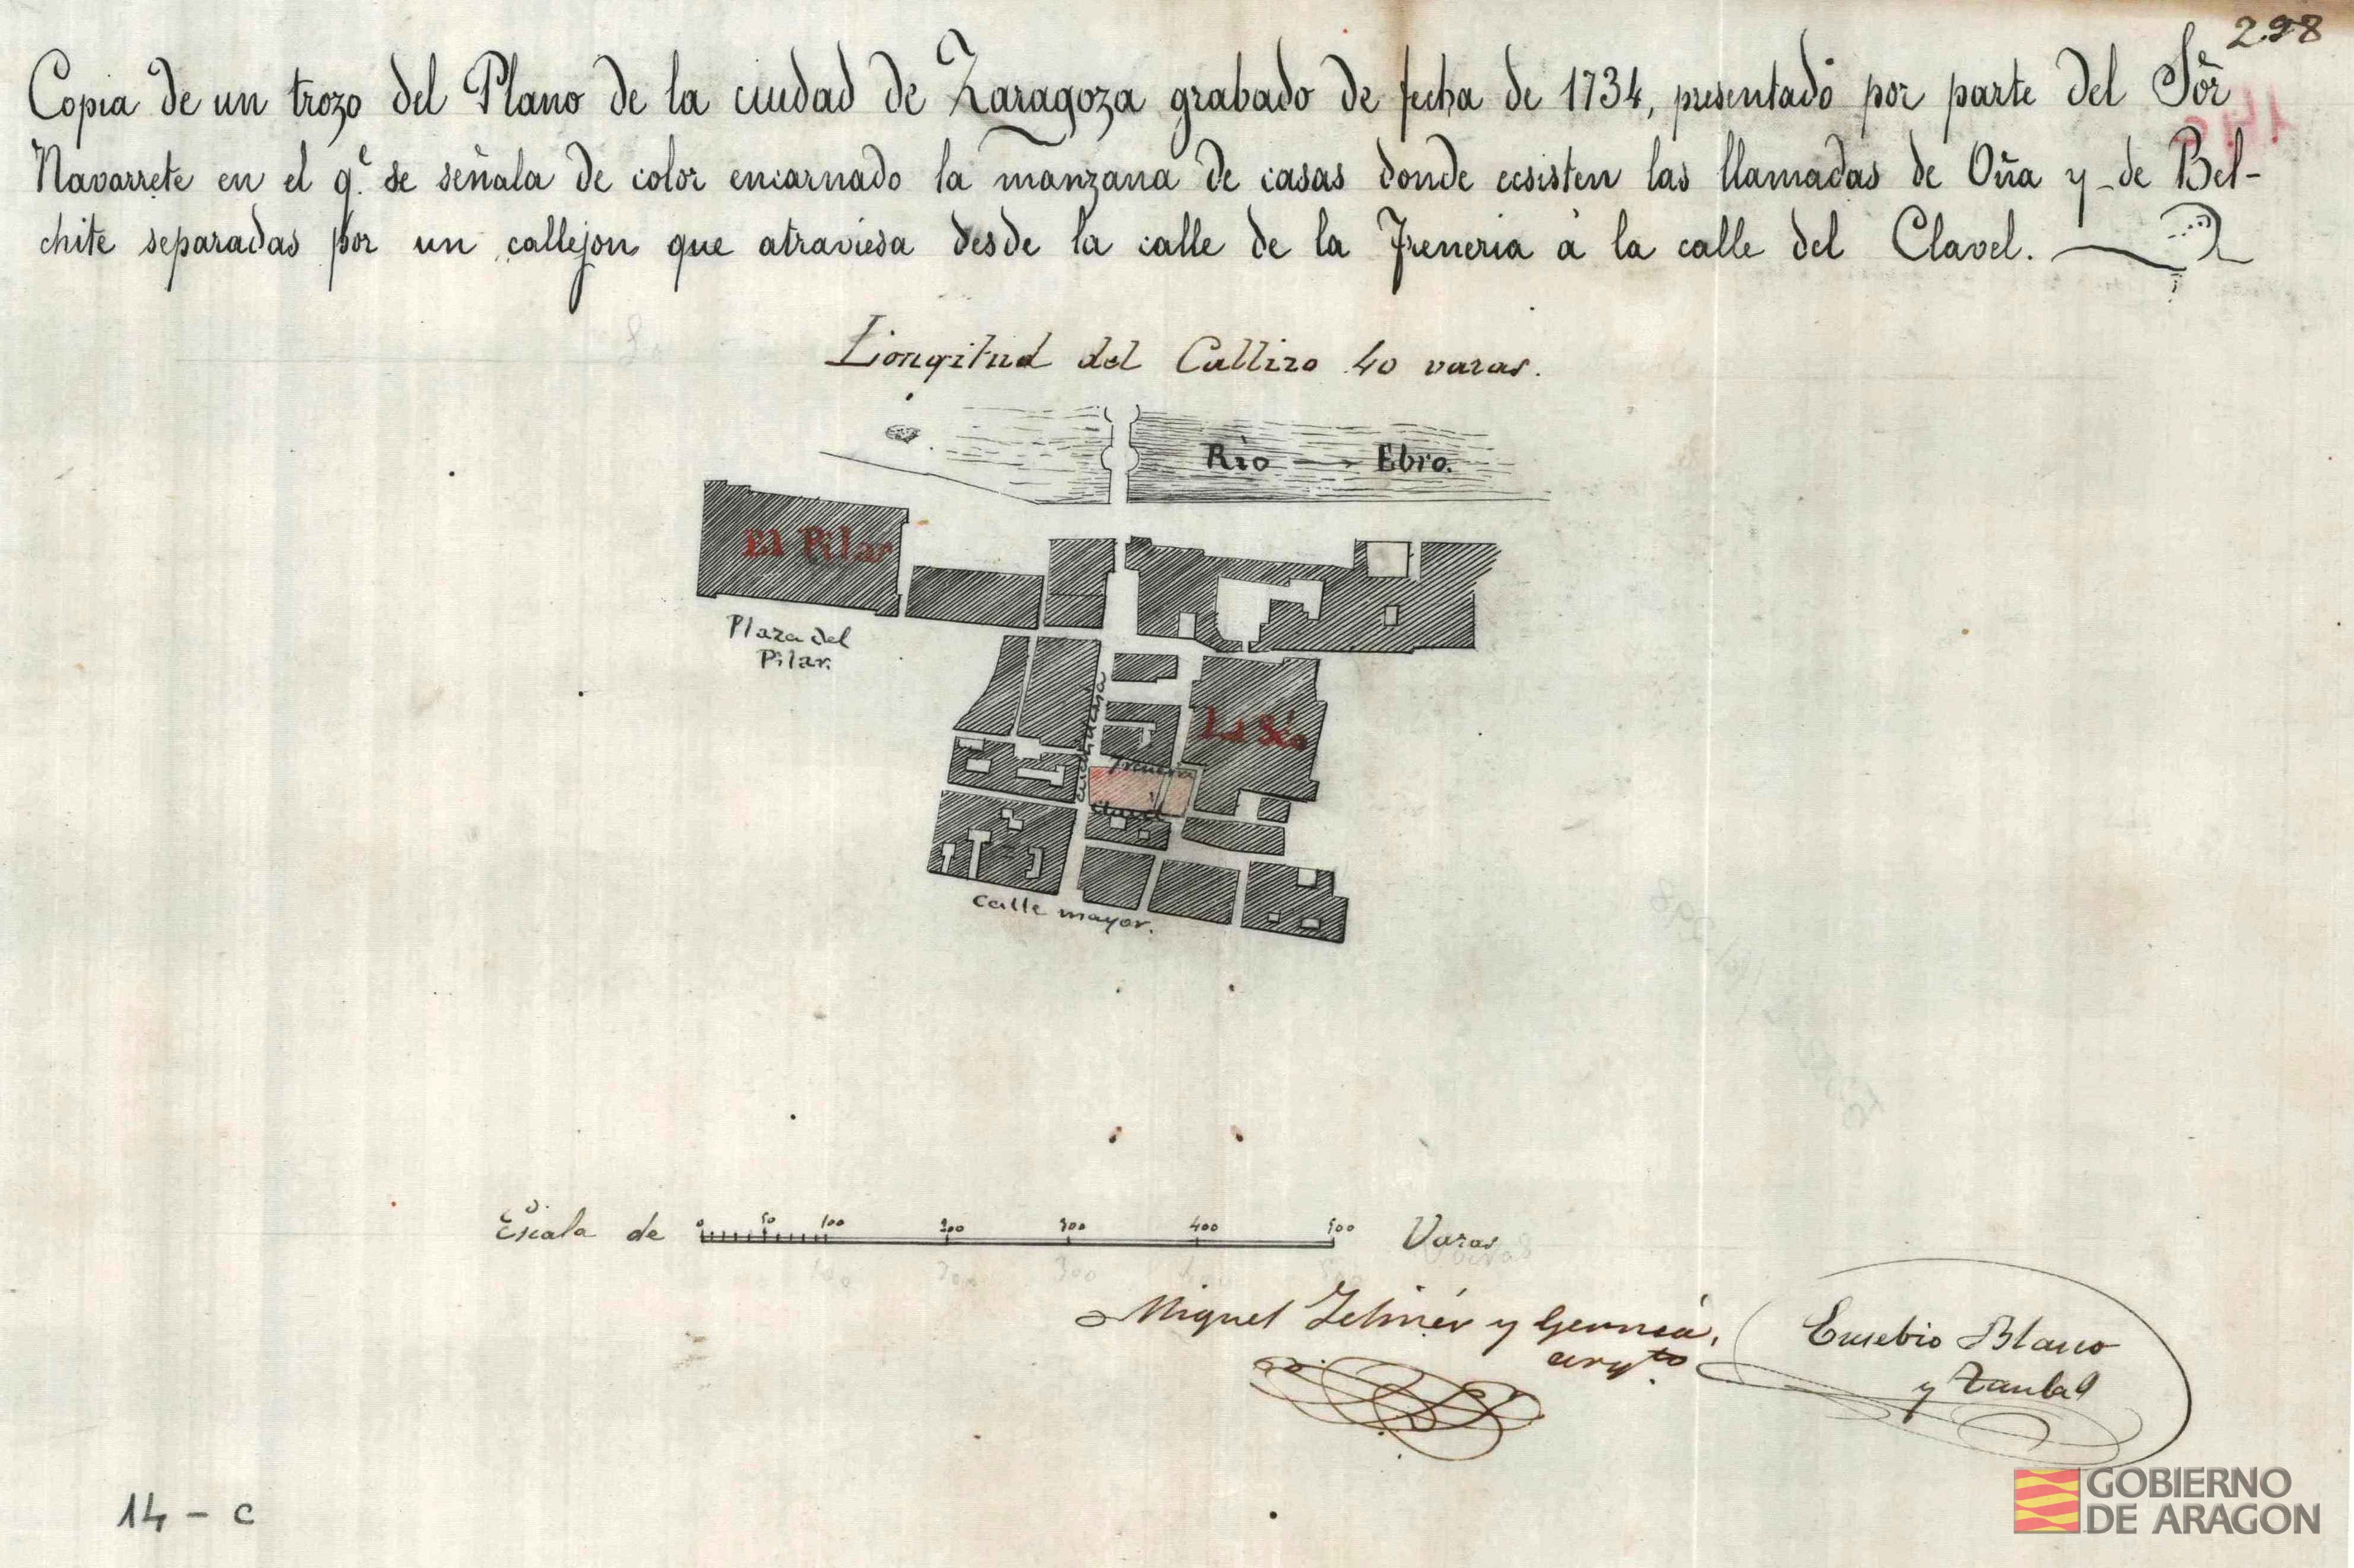 298
Copia de un trozo del Plano de la ciudad de Zaragoza grabado de fecha de 1734, presentado por parte del Sòr
Navarrete en el q.e se señala de color encarnado la manzana de casas donde ecsisten las llamadas de Oña y de Bel-
chite separadas por un callejon que atraviesa desde la calle de la Freneria à la calle del Clavel.
Longitud del Callizo 40 varas.
Rio Ebro.
El Pilar
Plaza del
Pilar.
La Seo
Cuchilleria
Freneria
Clavel
Calle mayor.
Escala de 0 50 100 200 300 400 500 Varas
Miguel y
arqto.
Eusebio Blanco
y
14 - C
GOBIERNO
DE ARAGON